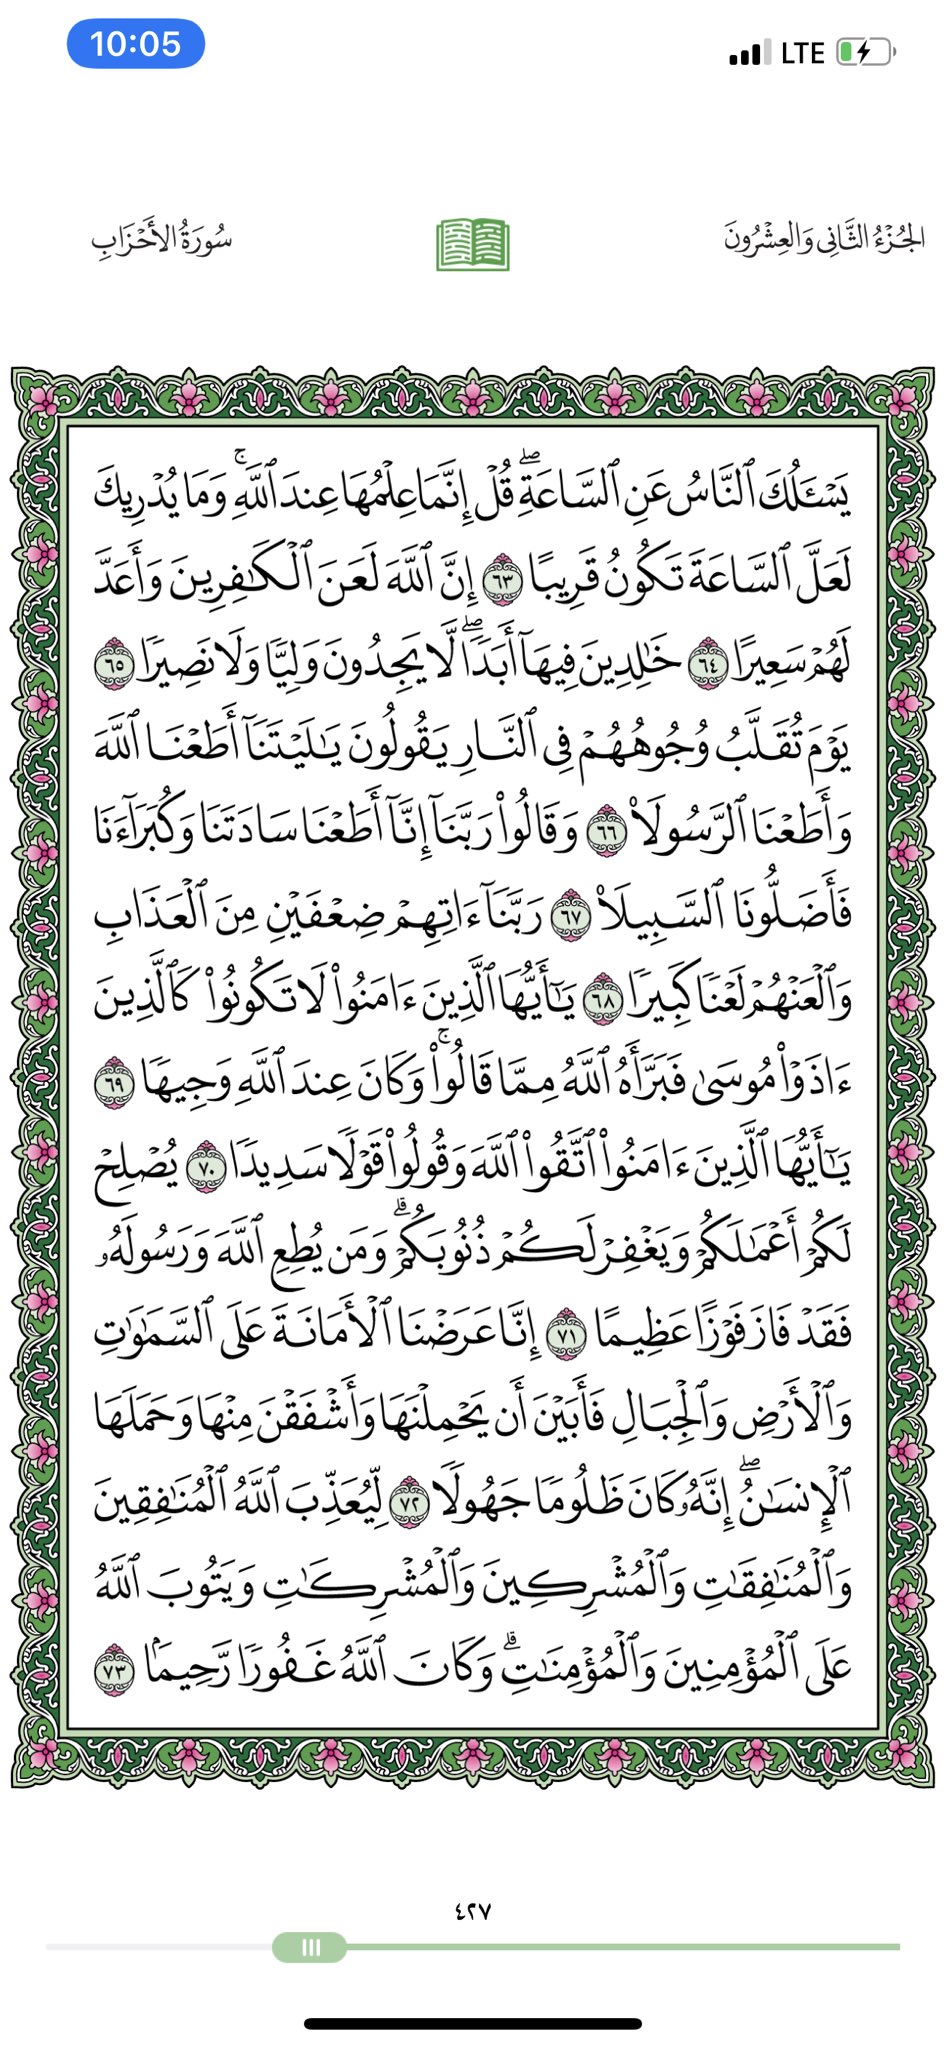 10:05
LTE
الجُزْءُ الثَّانِى وَالعِشْرُونَ
سُورَةُ الأَحْزَابِ
يَسْـَٔلُكَ ٱلنَّاسُ عَنِ ٱلسَّاعَةِۖ قُلْ إِنَّمَا عِلْمُهَا عِندَ ٱللَّهِۚ وَمَا يُدْرِيكَ
لَعَلَّ ٱلسَّاعَةَ تَكُونُ قَرِيبًا ٦٣ إِنَّ ٱللَّهَ لَعَنَ ٱلْكَٰفِرِينَ وَأَعَدَّ
لَهُمْ سَعِيرًا ٦٤ خَٰلِدِينَ فِيهَآ أَبَدًاۖ لَّا يَجِدُونَ وَلِيًّا وَلَا نَصِيرًا ٦٥
يَوْمَ تُقَلَّبُ وُجُوهُهُمْ فِى ٱلنَّارِ يَقُولُونَ يَٰلَيْتَنَآ أَطَعْنَا ٱللَّهَ
وَأَطَعْنَا ٱلرَّسُولَا۠ ٦٦ وَقَالُوا۟ رَبَّنَآ إِنَّآ أَطَعْنَا سَادَتَنَا وَكُبَرَآءَنَا
فَأَضَلُّونَا ٱلسَّبِيلَا۠ ٦٧ رَبَّنَآ ءَاتِهِمْ ضِعْفَيْنِ مِنَ ٱلْعَذَابِ
وَٱلْعَنْهُمْ لَعْنًا كَبِيرًا ٦٨ يَٰٓأَيُّهَا ٱلَّذِينَ ءَامَنُوا۟ لَا تَكُونُوا۟ كَٱلَّذِينَ
ءَاذَوْا۟ مُوسَىٰ فَبَرَّأَهُ ٱللَّهُ مِمَّا قَالُوا۟ۚ وَكَانَ عِندَ ٱللَّهِ وَجِيهًا ٦٩
يَٰٓأَيُّهَا ٱلَّذِينَ ءَامَنُوا۟ ٱتَّقُوا۟ ٱللَّهَ وَقُولُوا۟ قَوْلًا سَدِيدًا ٧٠ يُصْلِحْ
لَكُمْ أَعْمَٰلَكُمْ وَيَغْفِرْ لَكُمْ ذُنُوبَكُمْۗ وَمَن يُطِعِ ٱللَّهَ وَرَسُولَهُۥ
فَقَدْ فَازَ فَوْزًا عَظِيمًا ٧١ إِنَّا عَرَضْنَا ٱلْأَمَانَةَ عَلَى ٱلسَّمَٰوَٰتِ
وَٱلْأَرْضِ وَٱلْجِبَالِ فَأَبَيْنَ أَن يَحْمِلْنَهَا وَأَشْفَقْنَ مِنْهَا وَحَمَلَهَا
ٱلْإِنسَٰنُۖ إِنَّهُۥ كَانَ ظَلُومًا جَهُولًا ٧٢ لِّيُعَذِّبَ ٱللَّهُ ٱلْمُنَٰفِقِينَ
وَٱلْمُنَٰفِقَٰتِ وَٱلْمُشْرِكِينَ وَٱلْمُشْرِكَٰتِ وَيَتُوبَ ٱللَّهُ
عَلَى ٱلْمُؤْمِنِينَ وَٱلْمُؤْمِنَٰتِۗ وَكَانَ ٱللَّهُ غَفُورًا رَّحِيمًۢا ٧٣
٤٢٧